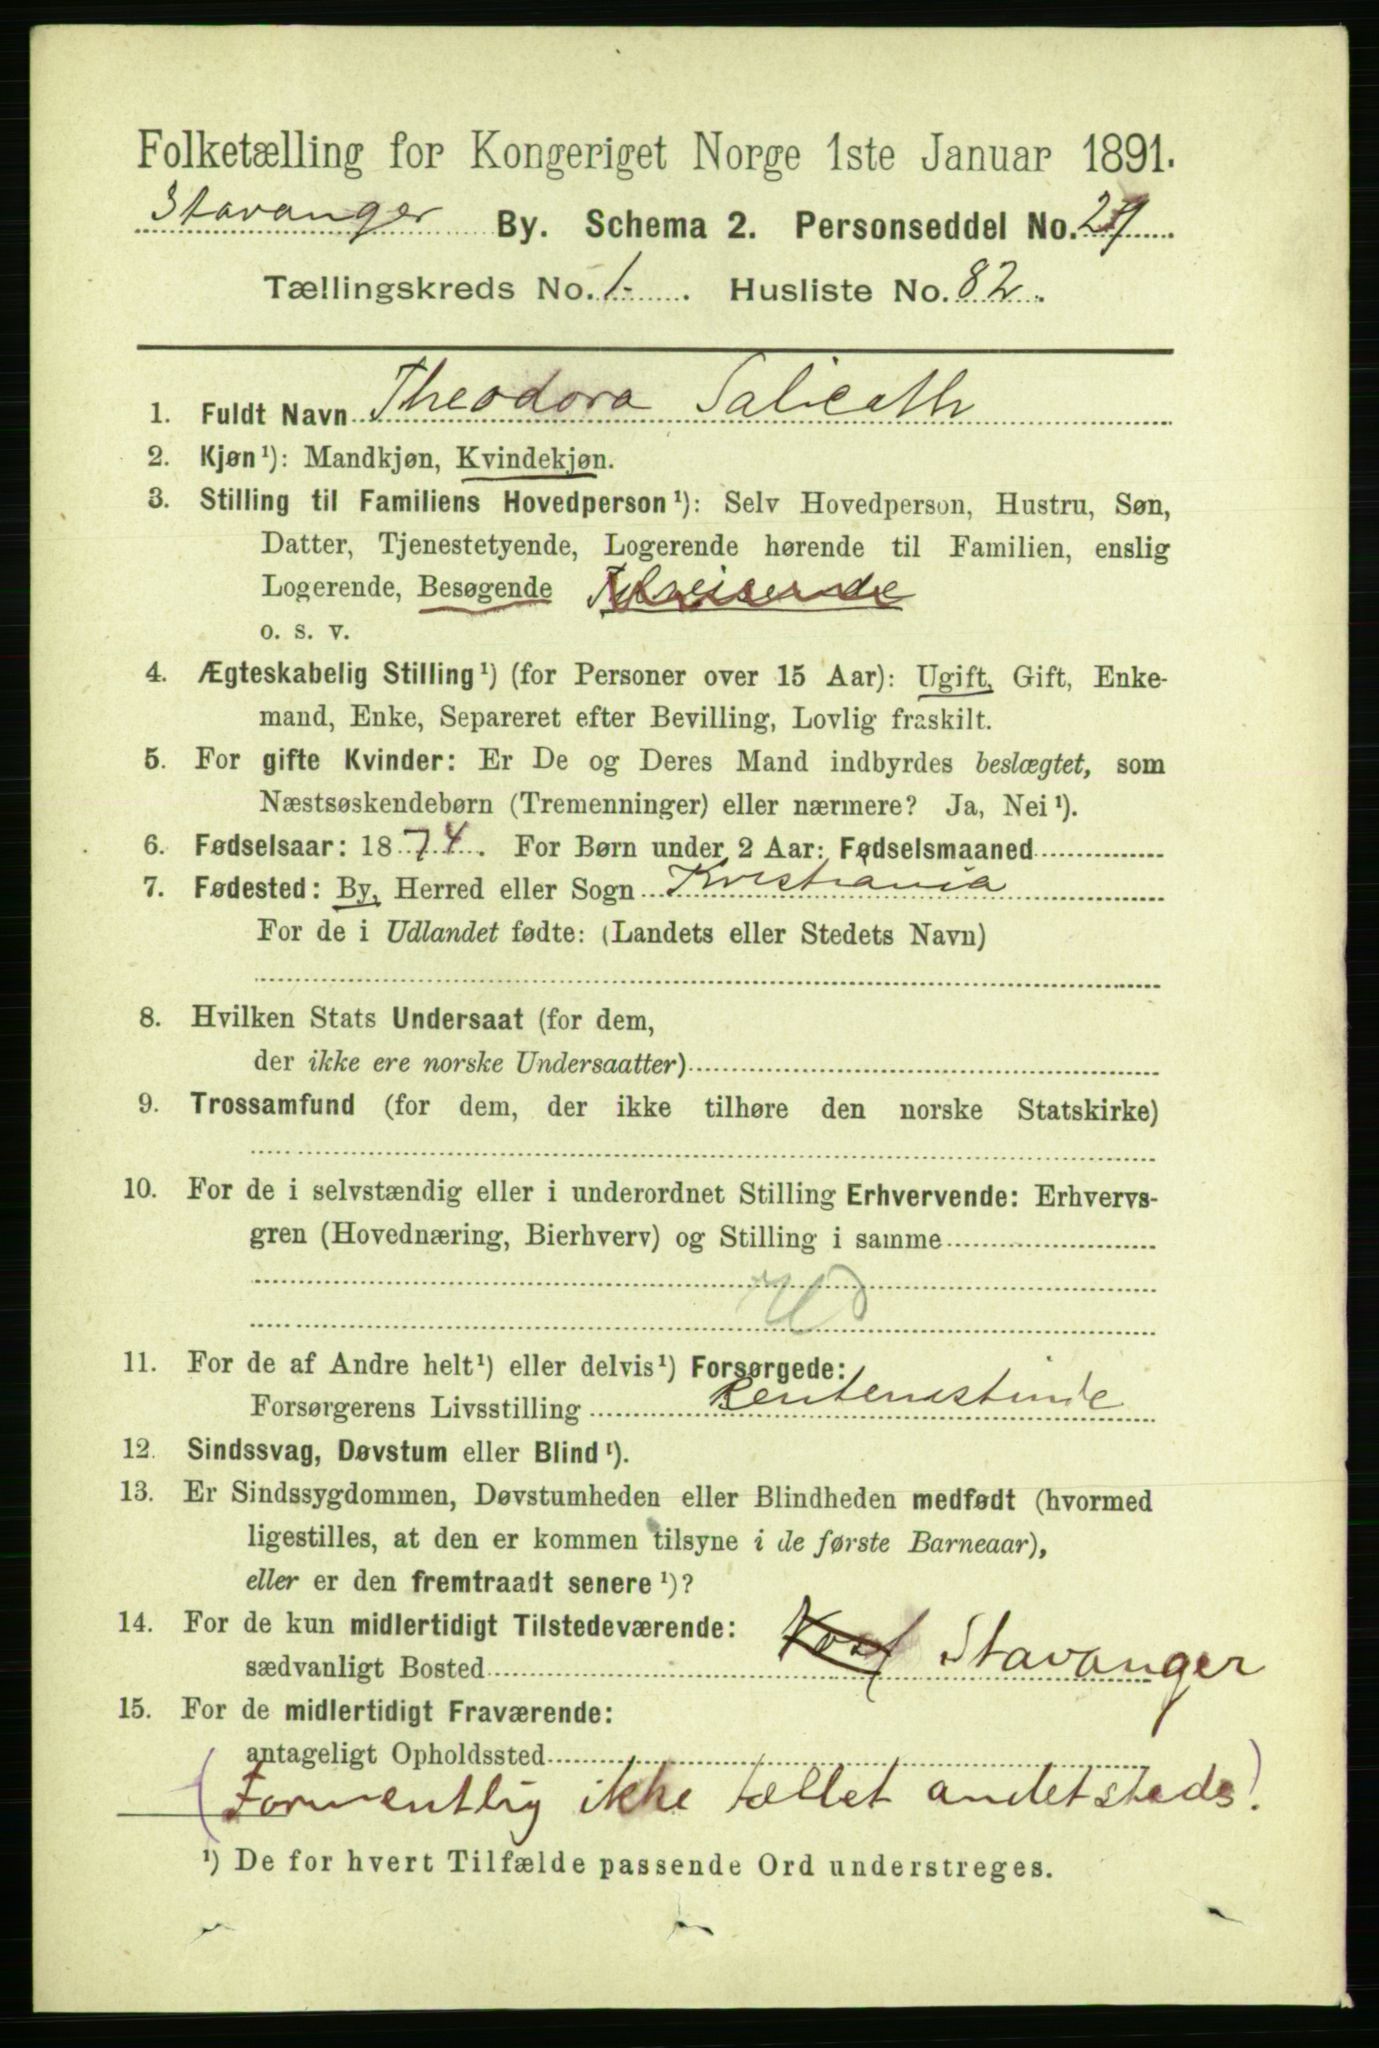 Folketælling for Kongeriget Norge 1ste Januar 1891.
Stavanger By. Schema 2. Personseddel No. 29
Tællingskreds No. 1. Husliste No. 82.
1. Fuldt Navn Theodora Salicath
2. Kjøn¹): Mandkjøn, Kvindekjøn.
3. Stilling til Familiens Hovedperson¹): Selv Hovedperson, Hustru, Søn,
Datter, Tjenestetyende, Logerende hørende til Familien, enslig
Logerende, Besøgende
o. s. v.
4. Ægteskabelig Stilling¹) (for Personer over 15 Aar): Ugift, Gift, Enke-
mand, Enke, Separeret efter Bevilling, Lovlig fraskilt.
5. For gifte Kvinder: Er De og Deres Mand indbyrdes beslægtet, som
Næstsøskendebørn (Tremenninger) eller nærmere? Ja, Nei¹).
6. Fødselsaar: 1874. For Børn under 2 Aar: Fødselsmaaned
7. Fødested: By, Herred eller Sogn Kristiania
For de i Udlandet fødte: (Landets eller Stedets Navn)
8. Hvilken Stats Undersaat (for dem,
der ikke ere norske Undersaatter)
9. Trossamfund (for dem, der ikke tilhøre den norske Statskirke)
10. For de i selvstændig eller i underordnet Stilling Erhvervende: Erhvervs-
gren (Hovednæring, Bierhverv) og Stilling i samme
11. For de af Andre helt¹) eller delvis¹) Forsørgede:
Forsørgerens Livsstilling Renteneistinde
12. Sindssvag, Døvstum eller Blind¹).
13. Er Sindssygdommen, Døvstumheden eller Blindheden medfødt (hvormed
ligestilles, at den er kommen tilsyne i de første Barneaar),
eller er den fremtraadt senere¹)?
14. For de kun midlertidigt Tilstedeværende:
sædvanligt Bosted Stavanger
15. For de midlertidigt Fraværende:
antageligt Opholdssted
(Formentlig ikke tællet andetsteds!)
¹) De for hvert Tilfælde passende Ord understreges.